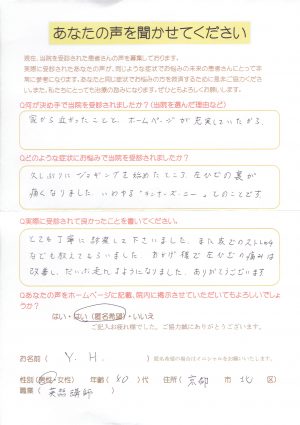 あなたの声を聞かせてください
現在、当院を受診された患者さんの声を募集しております。
実際に受診されたあなたの声が、同じような症状でお悩みの未来の患者さんにとって非
常に参考になります。あなたと同じ症状でお悩みの方を救済するために是非ご協力くださ
い。また、私たちにとっても治療の励みになります。ぜひともよろしくお願いします。
Q何が決め手で当院を受診されましたか？(当院を選んだ理由など)
家から近かったことと、ホームページが充実していたから。
Qどのような症状にお悩みで当院を受診されましたか？
久しぶりにジョギングを始めたところ、左ひざの裏が
痛くなりました。いわゆる"ランナーズ・ニー"とのことです。
Q実際に受診されて良かったことを書いてください。
とても丁寧に診察して下さいました。また足のストレッチ
なども教えてもらいました。おかげ様で左ひざの痛みは
改善し、だいぶ走れるようになりました。ありがとうございます
Qあなたの声をホームページに記載、院内に掲示させていただいてもよろしいでしょ
うか？
はい・はい(匿名希望)・いいえ
ご記入お疲れ様でした。ご協力誠にありがとうございます。
お名前( Y. H. )匿名希望の場合はイニシャルをお願いいたします。
性別(男性・女性) 年齢(40)代 住所(京都 市 北 区)
職業(英語講師)